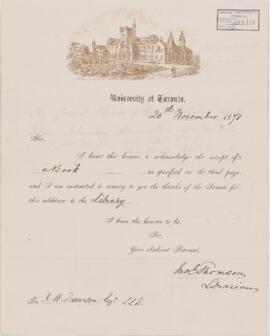 University of Toronto,
20th November 1878
Sir,
I have the honor to acknowledge the receipt of
a Book as specified on the third page,
and I am instructed to convey to you the thanks of the Senate for
this addition to the Library.
I have the honor to be,
Sir,
Your obedient Servant,
Librarian
J. W. Dawson Esq. LL.D.